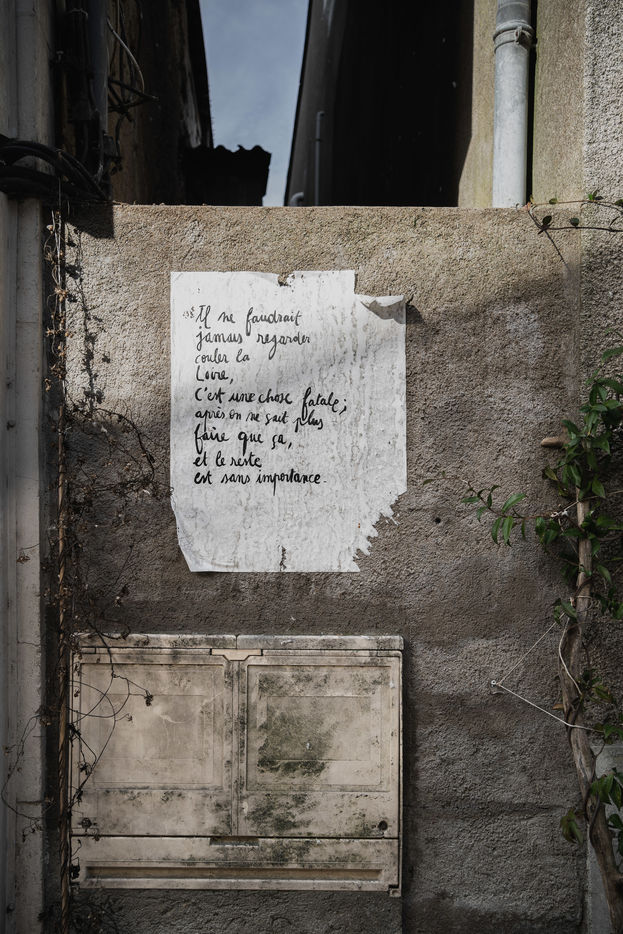 Il ne faudrait
jamais regarder
couler la
Loire,
C'est une chose fatale;
après on ne sait plus
faire que ça,
et le reste
est sans importance.